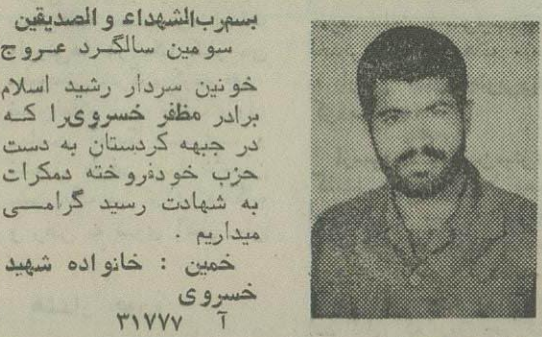 بسم‌رب‌الشهداء و الصدیقین
سومین سالگرد عروج
خونین سردار رشید اسلام
برادر مظفر خسروی‌را که
در جبهه کردستان به دست
حزب خودفروخته دمکرات
به شهادت رسید گرامی
میداریم .
خمین : خانواده شهید
خسروی
آ ۳۱۷۷۷